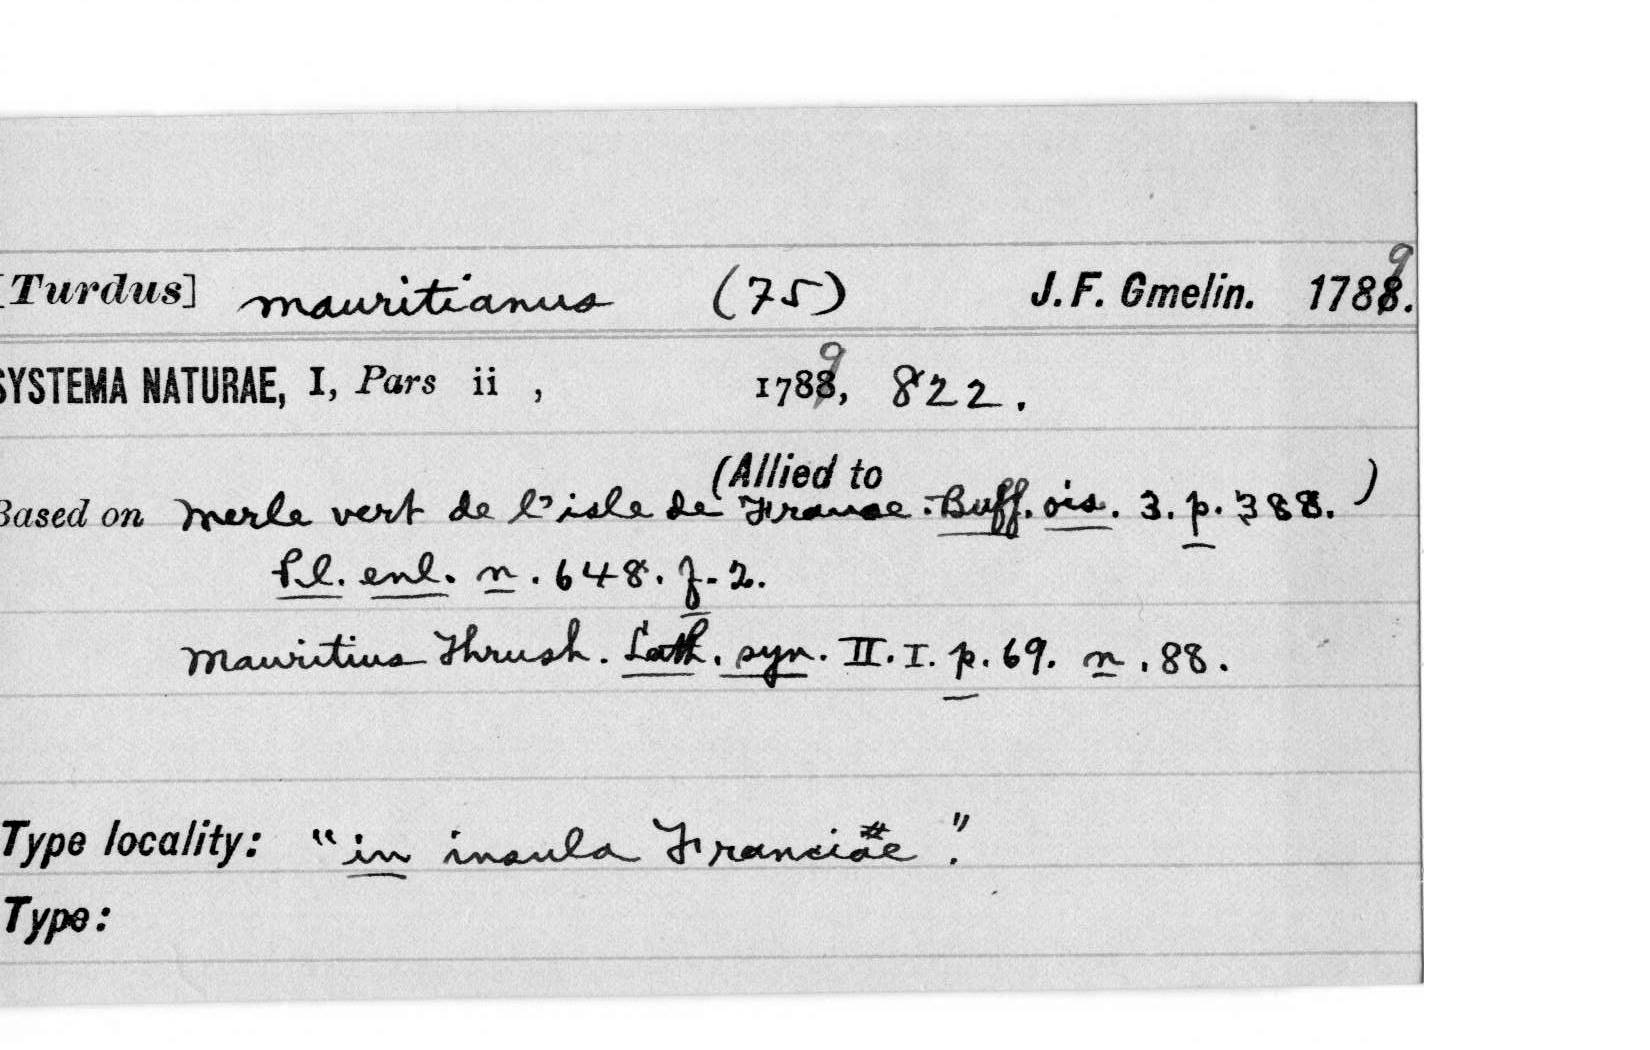 [Turdus] mauritianus (75) J. F. Gmelin. 1789.
SYSTEMA NATURAE, I, Pars ii , 1789, 822.
(Allied to
Based on Merle vert de l'isle de France. Buff. ois. 3. p. 388. )
Pl. enl. n. 648. f. 2.
Mauritius Thrush. Lath. syn. II. I. p. 69. n. 88.
Type locality: "in insula Franciae ."
Type: